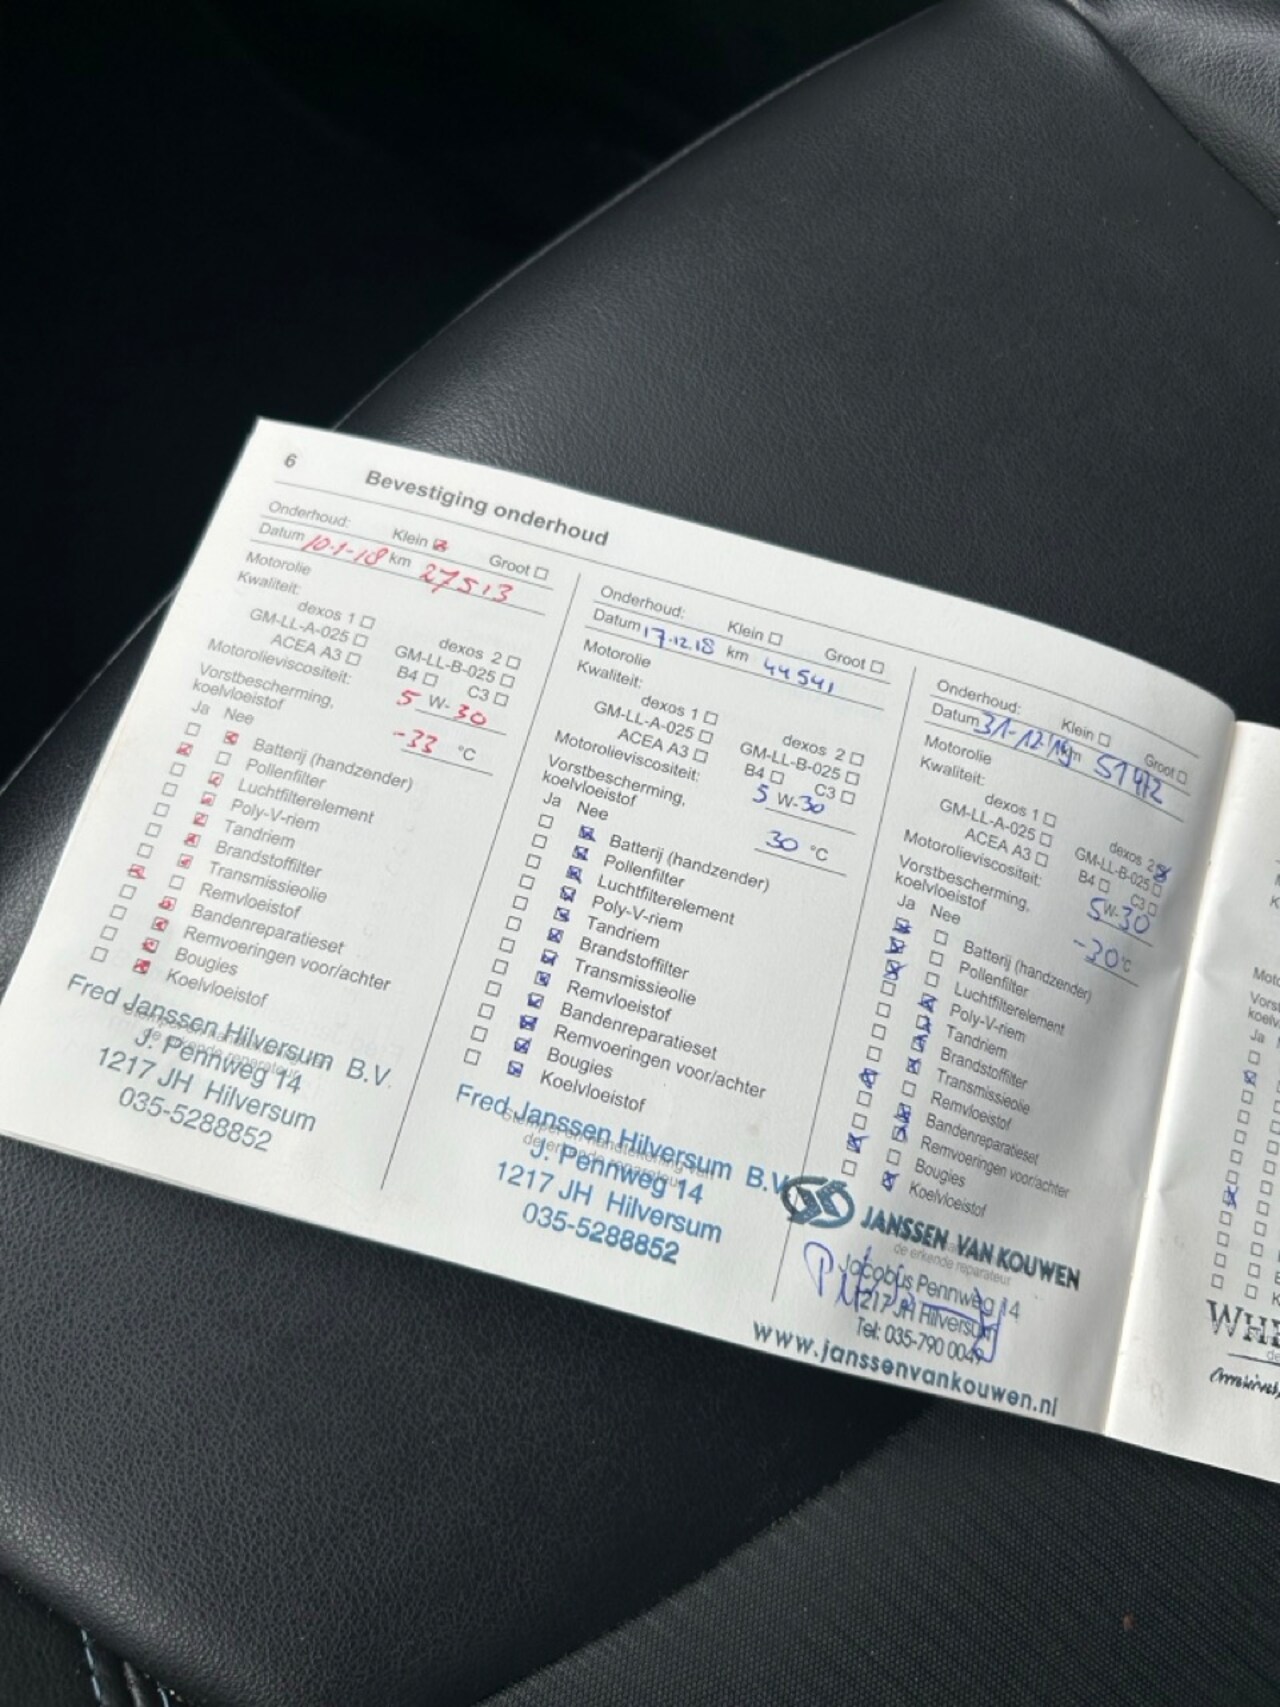 6
Bevestiging onderhoud
Onderhoud: Klein Groot
Datum 10-1-18 km 27513
Motorolie
Kwaliteit:
dexos 1 dexos 2
GM-LL-A-025 GM-LL-B-025
ACEA A3 B4 C3
Motorolieviscositeit: 5 W- 30
Vorstbescherming,
koelvloeistof -33 °C
Ja Nee
Batterij (handzender)
Pollenfilter
Luchtfilterelement
Poly-V-riem
Tandriem
Brandstoffilter
Transmissieolie
Remvloeistof
Bandenreparatieset
Remvoeringen voor/achter
Bougies
Koelvloeistof
Fred Janssen Hilversum B.V.
J. Pennweg 14
1217 JH Hilversum
035-5288852
Onderhoud: Klein Groot
Datum 17.12.18 km 44541
Motorolie
Kwaliteit:
dexos 1 dexos 2
GM-LL-A-025 GM-LL-B-025
ACEA A3 B4 C3
Motorolieviscositeit: 5 W- 30
Vorstbescherming,
koelvloeistof 30 °C
Ja Nee
Batterij (handzender)
Pollenfilter
Luchtfilterelement
Poly-V-riem
Tandriem
Brandstoffilter
Transmissieolie
Remvloeistof
Bandenreparatieset
Remvoeringen voor/achter
Bougies
Koelvloeistof
Fred Janssen Hilversum B.V.
J. Pennweg 14
1217 JH Hilversum
035-5288852
Onderhoud: Klein Groot
Datum 31-12-'19 km 51472
Motorolie
Kwaliteit:
dexos 1 dexos 2
GM-LL-A-025 GM-LL-B-025
ACEA A3 B4 C3
Motorolieviscositeit: 5 W- 30
Vorstbescherming,
koelvloeistof -30 °C
Ja Nee
Batterij (handzender)
Pollenfilter
Luchtfilterelement
Poly-V-riem
Tandriem
Brandstoffilter
Transmissieolie
Remvloeistof
Bandenreparatieset
Remvoeringen voor/achter
Bougies
Koelvloeistof
JANSSEN VAN KOUWEN
de erkende reparateur
Jacobus Pennweg 14
1217 JH Hilversum
Tel: 035-790 0049
www.janssenvankouwen.nl
Ja